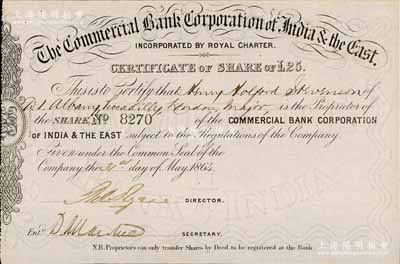 上海陽明拍賣
The Commercial Bank Corporation of India & the East.
INCORPORATED BY ROYAL CHARTER.
CERTIFICATE OF SHARE OF £25.
This is to Certify that Henry Holford Stevenson of
A1 Albany Piccadilly London, Major is the Proprietor of
the SHARE No 8270 of the COMMERCIAL BANK CORPORATION
OF INDIA & THE EAST subject to the Regulations of the Company.
Given under the Common Seal of the
Company this day of May 1864
DIRECTOR.
Entd
SECRETARY.
N.B. Proprietors can only transfer Shares by Deed to be registered at the Bank